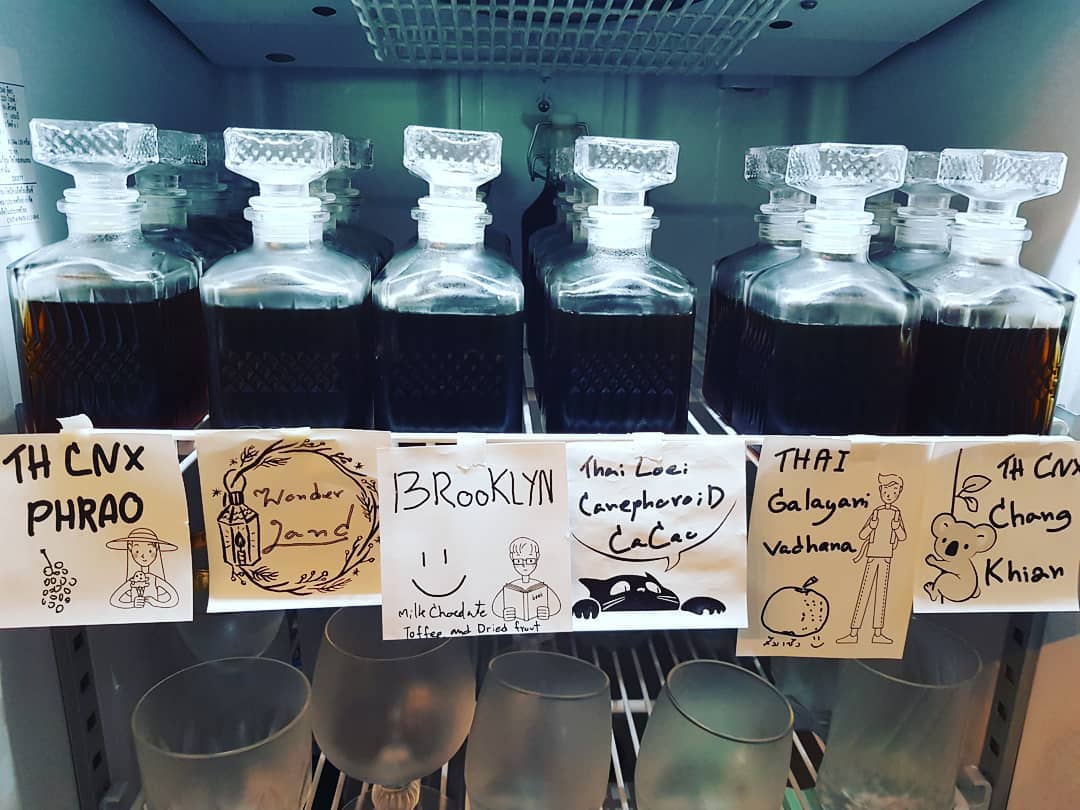 TH CNX
PHRAO
Wonder
Land
BROOKLYN
Milk Chocolate
Toffee and Dried fruit
Thai Loei
CanephoroiD
CaCao
THAI
Galayani
Vadhana
TH CNX
Chang
Khian